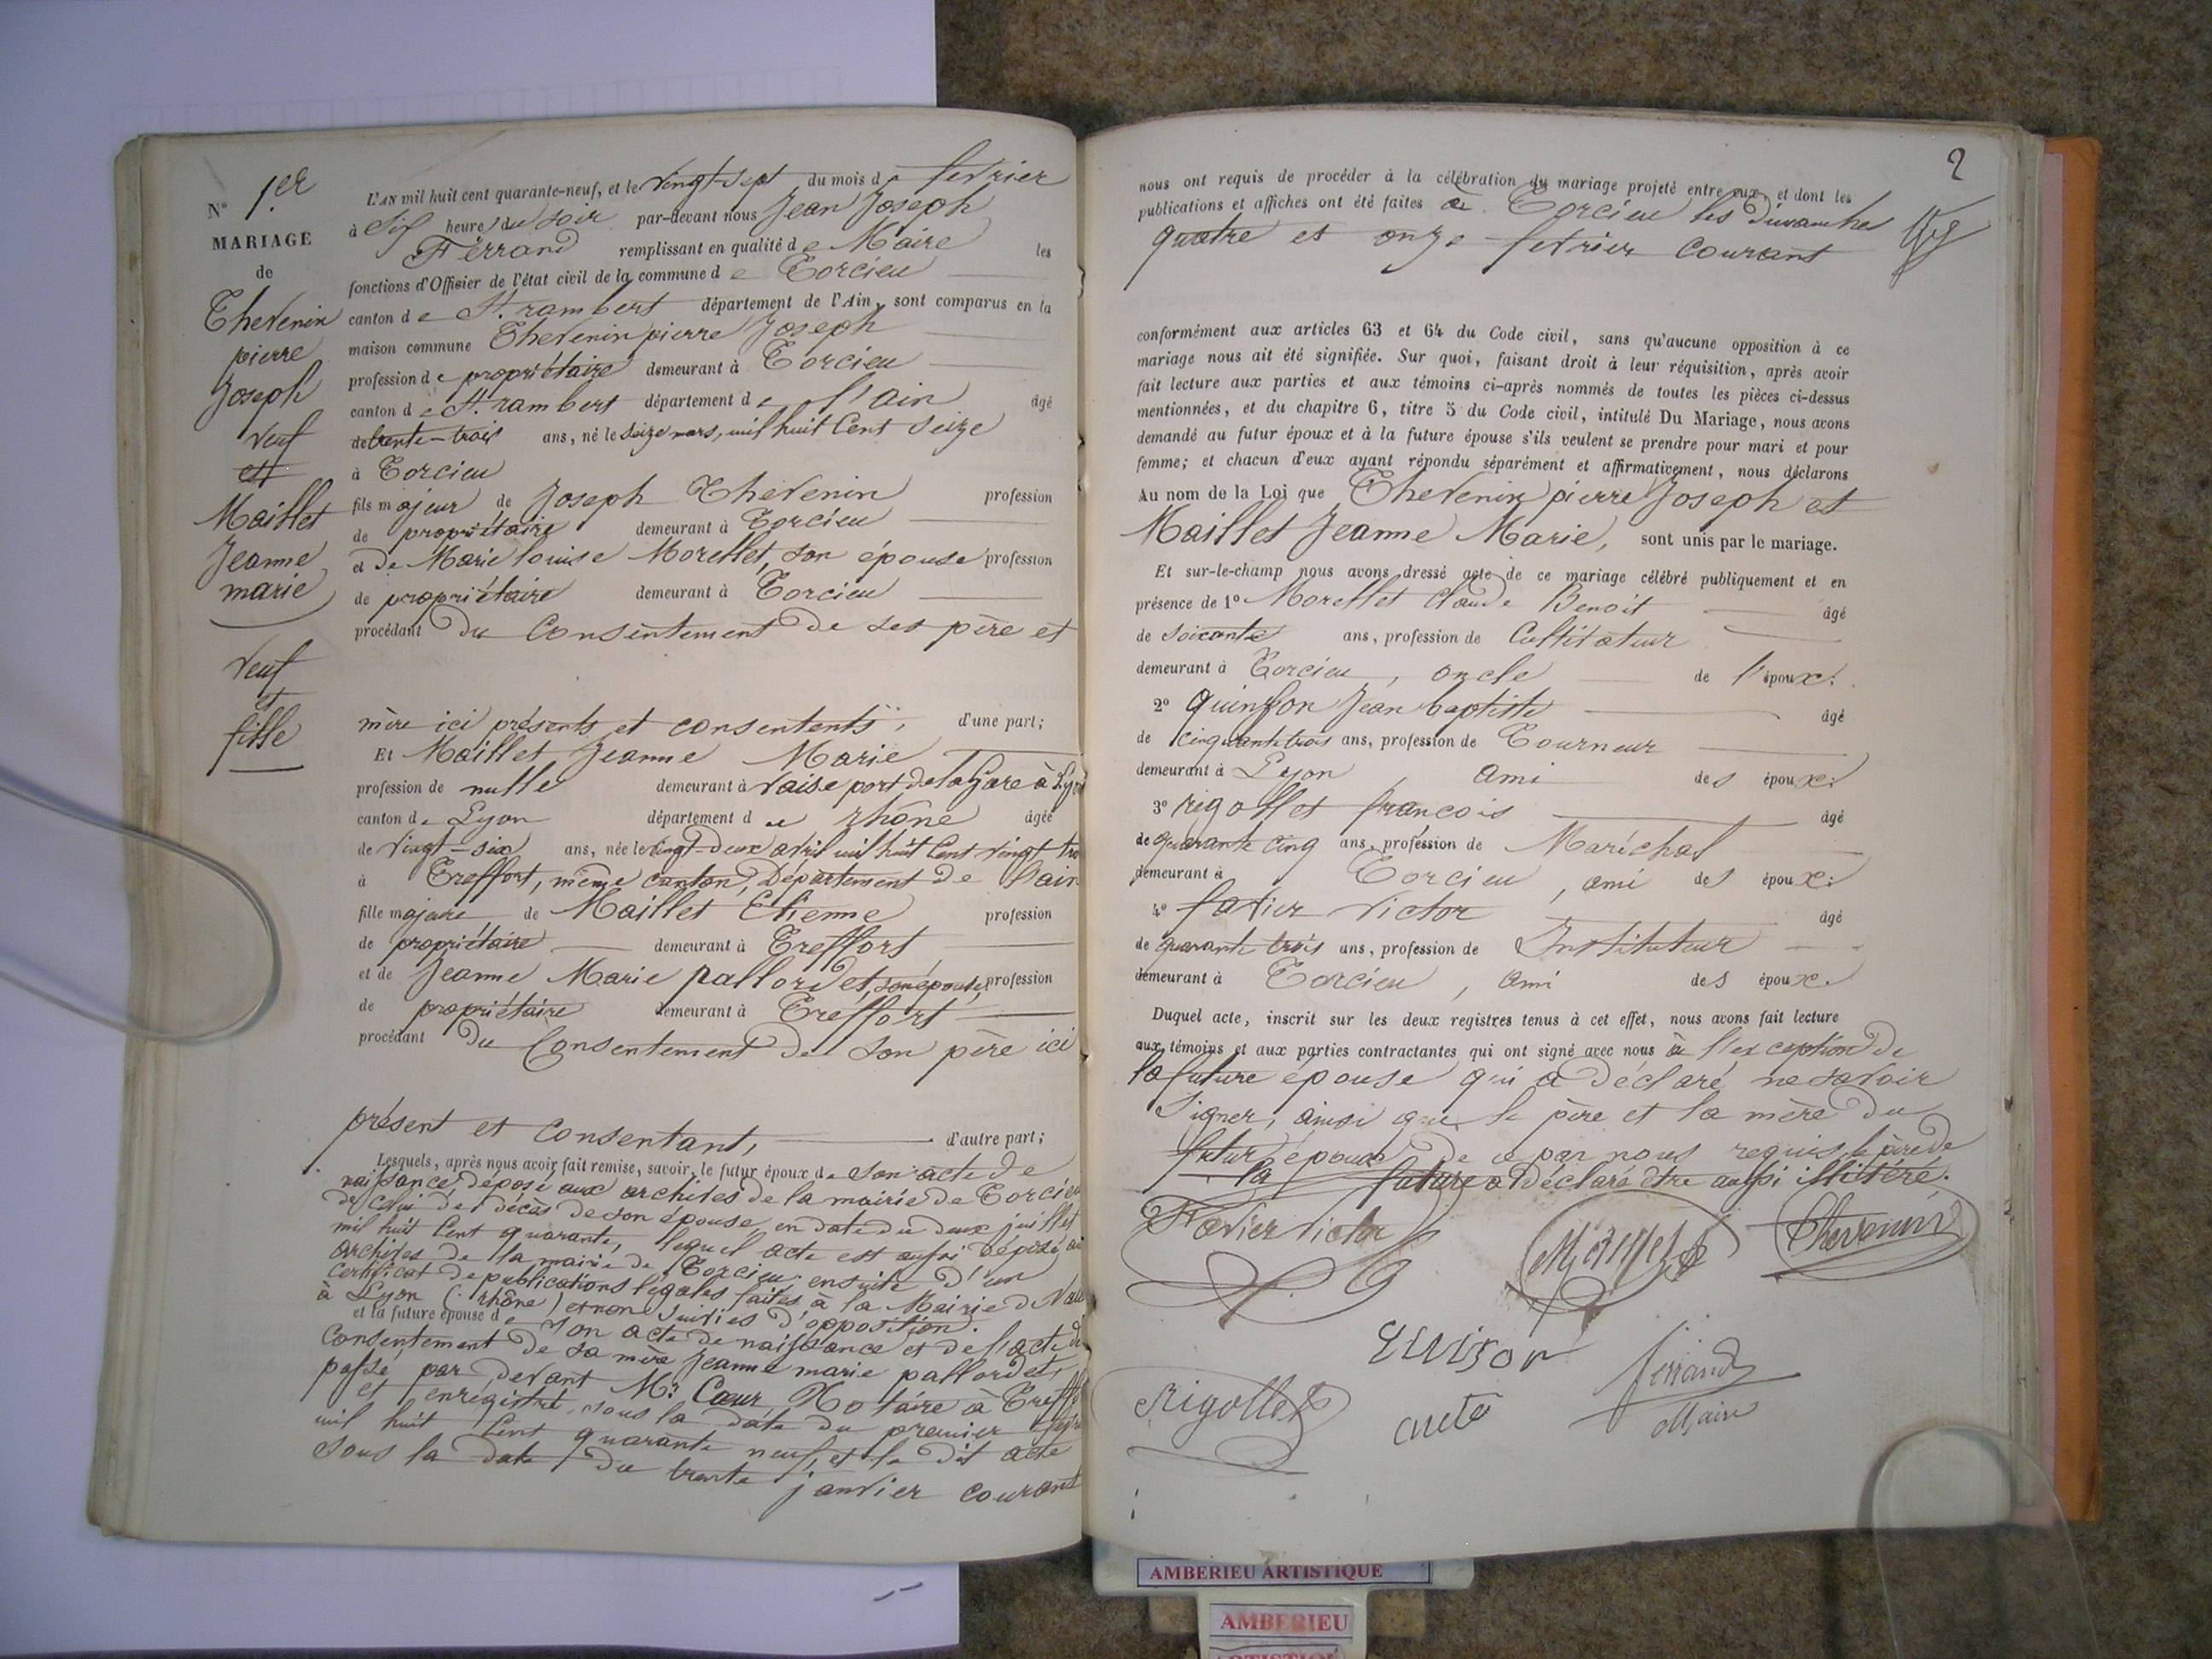 N° 1er
MARIAGE
de
Thevenin
pierre
Joseph
veuf
et
Maillet
Jeanne
marie
veuf
et
fille
L'AN mil huit cent quarante-neuf, et le vingt-sept du mois de fevrier
à six heures du soir par-devant nous Jean Joseph
Ferrand remplissant en qualité de Maire les
fonctions d'Officier de l'état civil de la commune de Torcieu
canton de St. rambert département de l'Ain, sont comparus en la
maison commune Thevenin pierre Joseph
profession de propriétaire demeurant à Torcieu
canton de St. rambert département de l'ain âgé
de trente-trois ans, né le seize mars, mil huit Cent Seize
à Torcieu
fils majeur de Joseph Thevenin profession
de propriétaire demeurant à Torcieu
et de Marie louise Morellet, son épouse profession
de propriétaire demeurant à Torcieu
procédant du Consentement de ses père et
mère ici présents et consentents, d'une part;
Et Maillet Jeanne Marie
profession de nulle demeurant à Vaise port de la Gare à Lyon
canton de Lyon département du rhône âgée
de vingt-six ans, née le vingt-deux avril mil huit Cent vingt tro
à Treffort, même canton, Département de l'ain
fille majeure de Maillet Etienne profession
de propriétaire demeurant à Treffort
et de Jeanne Marie pallordet, son épouse, profession
de propriétaire demeurant à Treffort
procédant du Consentement de son père ici
présent et consentant, d'autre part;
Lesquels, après nous avoir fait remise, savoir, le futur époux de son acte de
naissance déposé aux archives de la mairie de Torcieu
de celui de décès de son épouse, en date du deux juillet
mil huit Cent quarante, lequel acte est aussi déposé au
archives de la mairie de Torcieu; ensuite d'un
certificat de publications légales faites à la Mairie de Vaise
à Lyon (rhône) et non suivies d'opposition.
et la future épouse de son acte de naissance et de l'acte de
Consentement de sa mère Jeanne marie pallordet,
passé par devant Mr. Cœur, Notaire à Treffort
et enregistré sous la date du premier
mil huit Cent quarante neuf, et le dit acte
sous la date du trente janvier courant
2
nous ont requis de procéder à la célébration du mariage projeté entre eux, et dont les
publications et affiches ont été faites à Torcieu les Dimanches
quatre et onze fevrier courant
conformément aux articles 63 et 64 du Code civil, sans qu'aucune opposition à ce
mariage nous ait été signifiée. Sur quoi, faisant droit à leur réquisition, après avoir
fait lecture aux parties et aux témoins ci-après nommés de toutes les pièces ci-dessus
mentionnées, et du chapitre 6, titre 5 du Code civil, intitulé Du Mariage, nous avons
demandé au futur époux et à la future épouse s'ils veulent se prendre pour mari et pour
femme; et chacun d'eux ayant répondu séparément et affirmativement, nous déclarons
Au nom de la Loi que Thevenin pierre Joseph et
Maillet Jeanne Marie, sont unis par le mariage.
Et sur-le-champ nous avons dressé acte de ce mariage célébré publiquement et en
présence de 1° Morellet Claude Benoit âgé
de soixante ans, profession de Cultivateur
demeurant à Torcieu, oncle de l'époux.
2° quinson Jean baptiste âgé
de cinquante trois ans, profession de Tourneur
demeurant à Lyon, ami des époux.
3° rigollet francois âgé
de quarante cinq ans, profession de Maréchal
demeurant à Torcieu, ami des époux.
4° favier victor âgé
de quarante trois ans, profession de Instituteur
demeurant à Torcieu, ami des époux.
Duquel acte, inscrit sur les deux registres tenus à cet effet, nous avons fait lecture
aux témoins et aux parties contractantes qui ont signé avec nous à l'exception de
la future épouse qui a déclaré ne savoir
signer, ainsi que le père et la mère du
futur époux de ce par nous requis, le père de
la future a déclaré être aussi illitéré.
Favier Victor
Morellet
Thevenin
quinson
Ferrand
Rigollet
Maire
AMBERIEU ARTISTIQUE
AMBERIEU
ARTISTIQUE